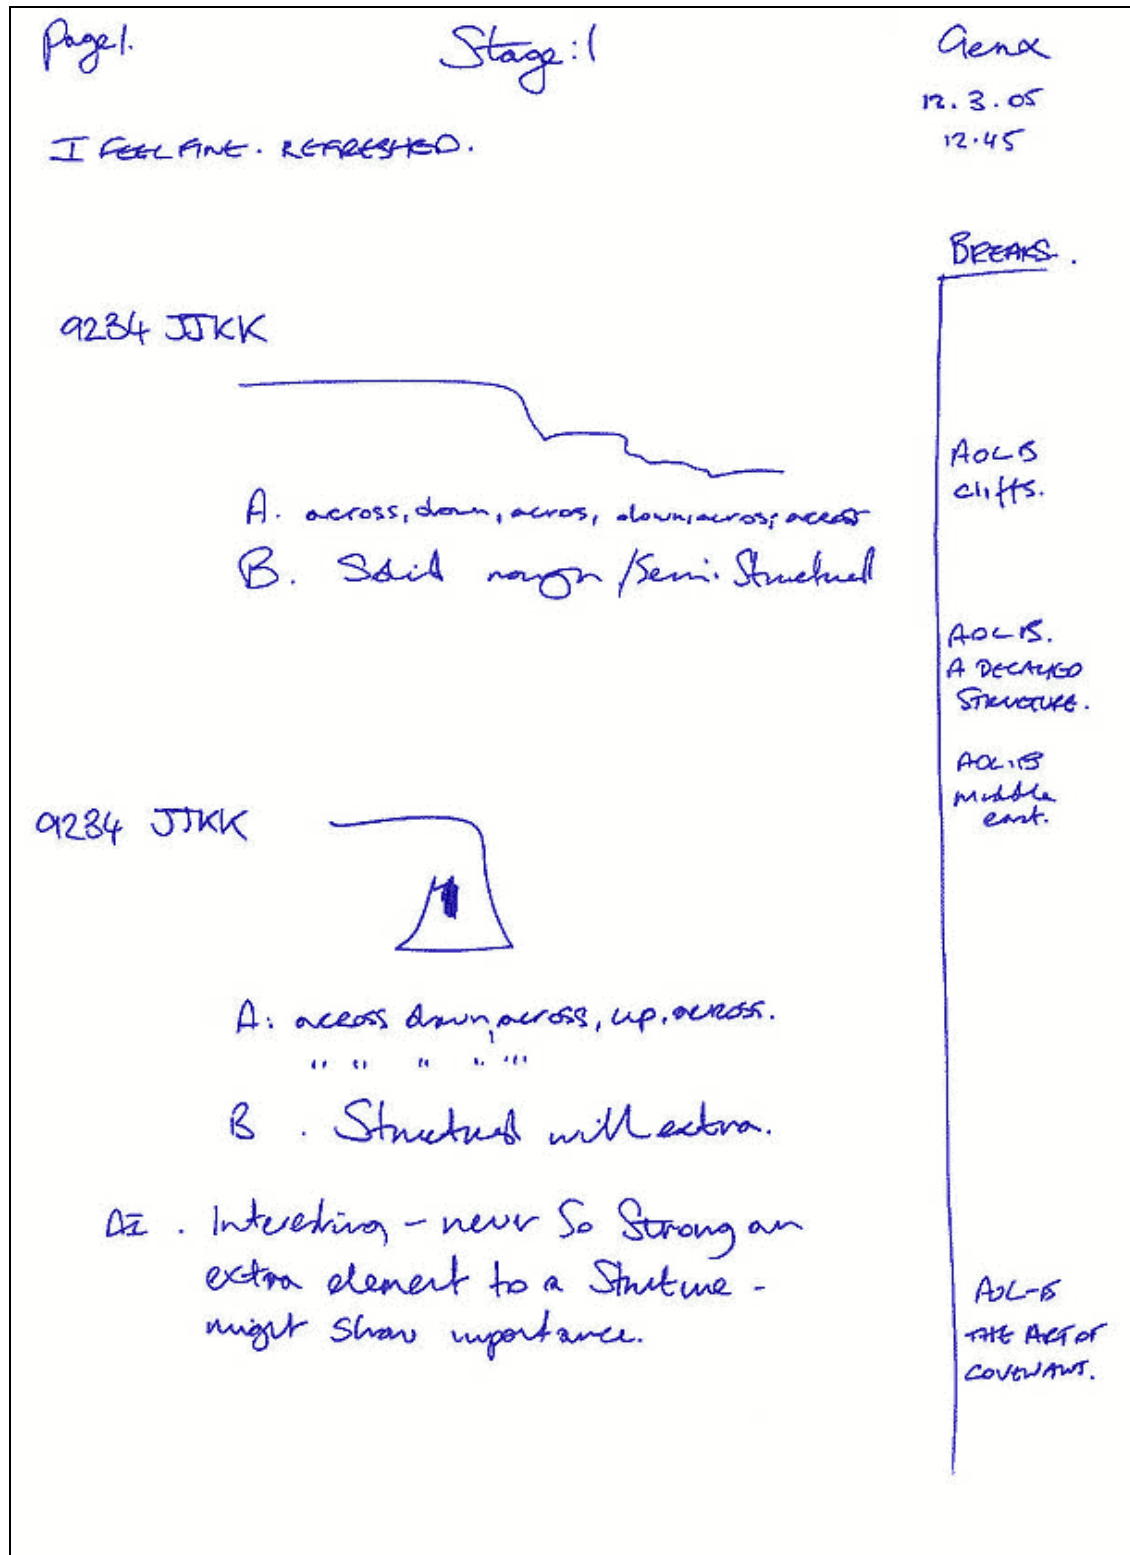 Page 1.
Stage: 1
Genx
12.3.05
12.45
I FEEL FINE. REFRESHED.
BREAKS.
9234 JJKK
AOL B
cliffs.
A. across, down, acros, down, acros, across
B. Solid rough / Semi. Structural
AOL B.
A DECAYED
STRUCTURE.
AOL B
middle
east.
9234 JJKK
A: across down, across, up, across.
" " " " " "
B. Structured will extra.
AI. Interesting - never So Strong an
extra element to a Struture -
might show importance.
AOL-B
THE ART OF
COVENANT.